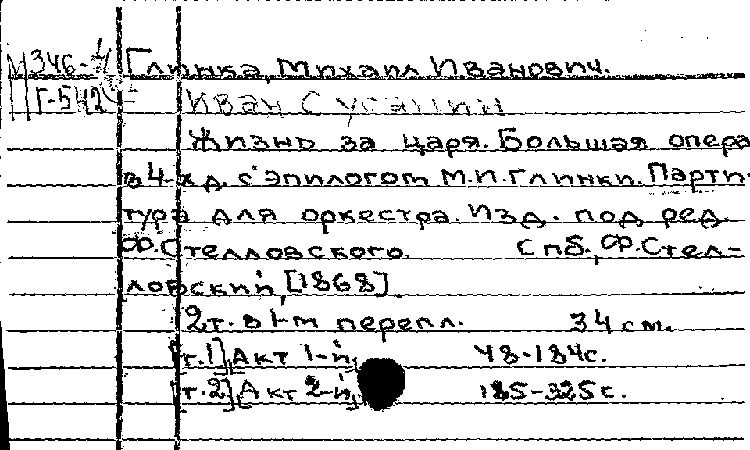 М 346-4 Глинка, Михаил Иванович.
Г-542 Иван Сусанин
Жизнь за царя. Большая опера
в 4-х д. с эпилогом М.И.Глинки. Парти-
тура для оркестра. Изд. под ред.
Ф.Стелловского. Спб., Ф.Стел-
ловский, [1868]
2т. в 1-м перепл. 34 см.
[т.1], Акт 1-й, 48-184с.
[т.2], [Акт 2-й, 185-325с.